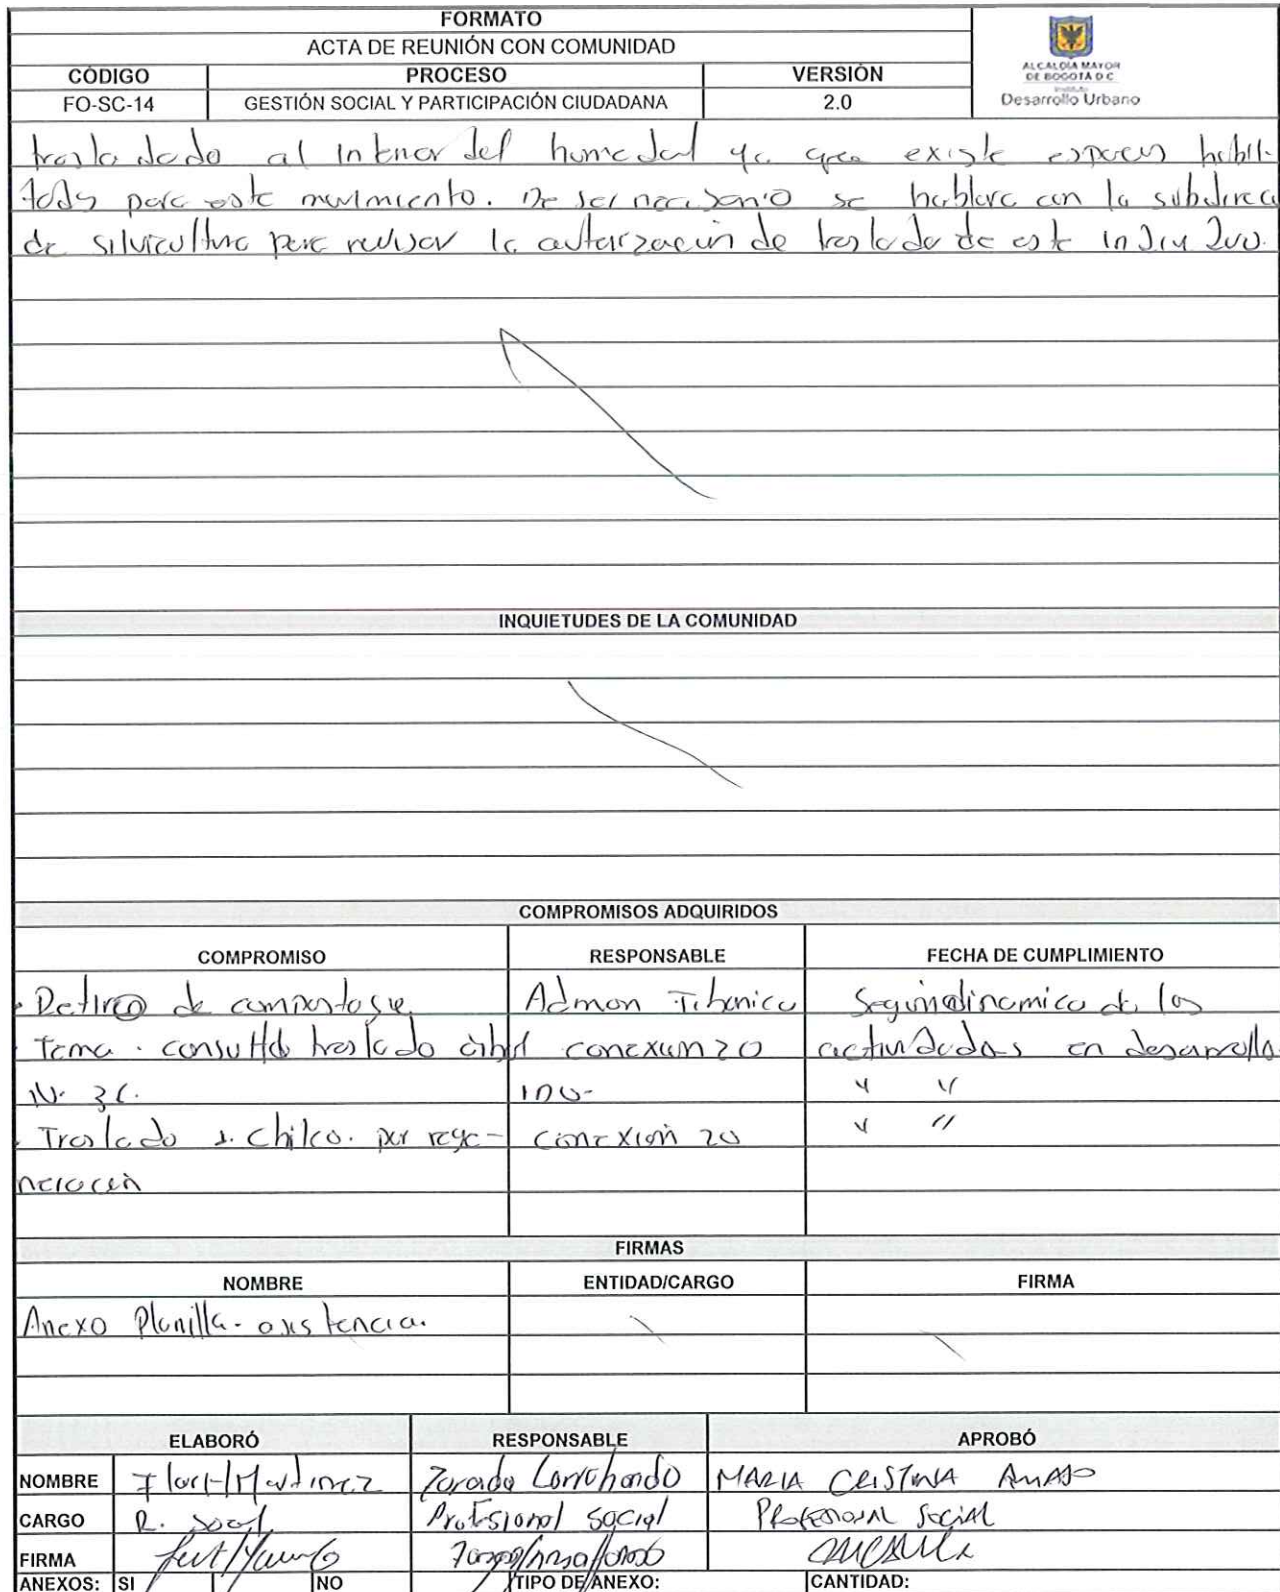 FORMATO
ACTA DE REUNIÓN CON COMUNIDAD
CÓDIGO PROCESO VERSIÓN
FO-SC-14 GESTIÓN SOCIAL Y PARTICIPACIÓN CIUDADANA 2.0
ALCALDÍA MAYOR
DE BOGOTÁ D.C.
Instituto
Desarrollo Urbano
trasladado al interior del humedal ya que existe espacios habili-
tados para este movimiento. De ser necesario se hablara con la subdirec
de silvicultura para revisar la autorización de traslado de este individuo.
INQUIETUDES DE LA COMUNIDAD
COMPROMISOS ADQUIRIDOS
COMPROMISO RESPONSABLE FECHA DE CUMPLIMIENTO
· Retiro de compostaje Admon Tibanica Según dinamica de las
· Tema · consulta traslado árbol conexion 20 actividades en desarrollo.
N. IDU- " "
· Traslado 1. Chilco. por rege- conexión 20 " "
neración
FIRMAS
NOMBRE ENTIDAD/CARGO FIRMA
Anexo Planilla - asistencia.
ELABORÓ RESPONSABLE APROBÓ
NOMBRE Martinez MARIA CRISTINA AMADO
CARGO R. Social Profesional social PROFESIONAL SOCIAL
FIRMA
ANEXOS: SI NO TIPO DE ANEXO: CANTIDAD: